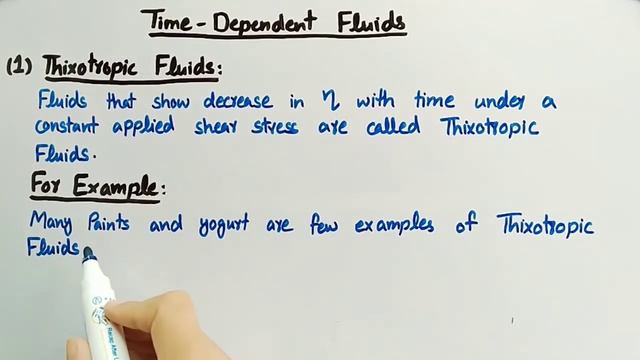 Time-Dependent Fluids
(1) Thixotropic Fluids:
Fluids that show decrease in η with time under a
constant applied shear stress are called Thixotropic
Fluids.
For Example:
Many Paints and yogurt are few examples of Thixotropic
Fluids